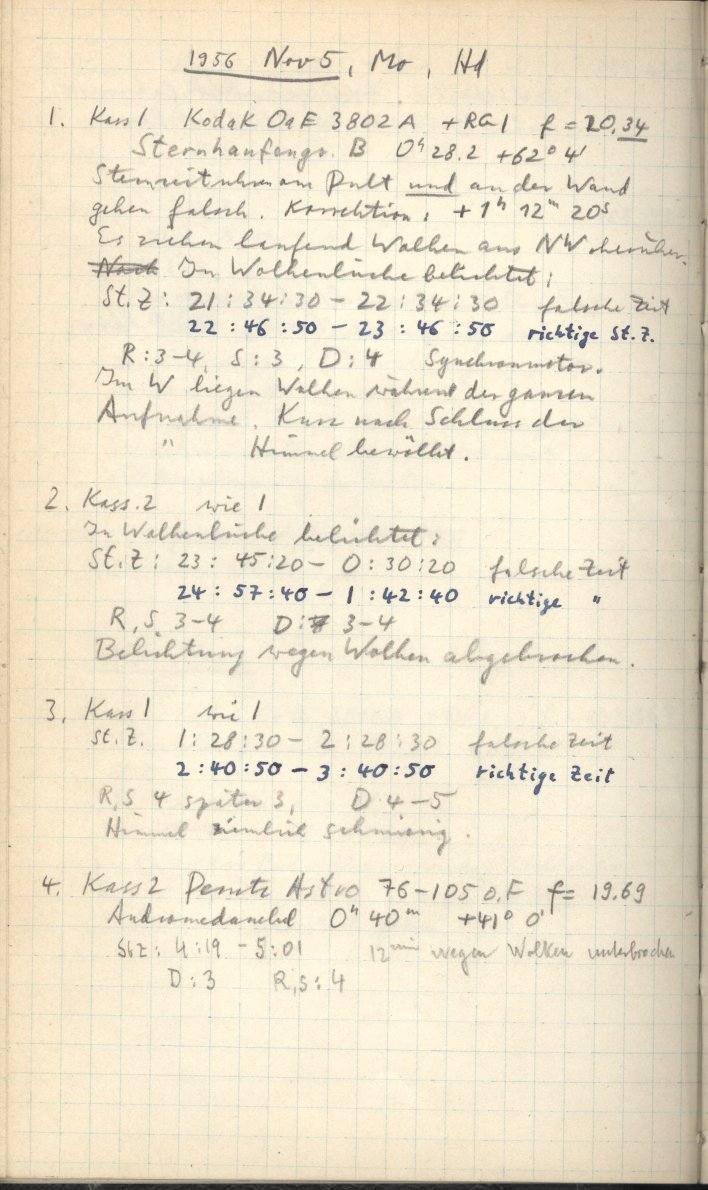 1956 Nov 5, Mo, Hd
1. Kass 1 Kodak OaE 3802A + RG1 f = 20.34
Sternhaufengr. B 0h 28.2 +62° 4'
Sternzeituhren am Pult und an der Wand
gehen falsch. Korrektion: + 1h 12m 20s
Es ziehen laufend Wolken aus NW herüber.
Nach In Wolkenlücke belichtet:
St.Z: 21:34:30 - 22:34:30 falsche Zeit
22:46:50 - 23:46:50 richtige St.Z.
R:3-4, S:3, D:4 Synchronmotor.
Im W liegen Wolken während der ganzen
Aufnahme. Kurz nach Schluss der
" Himmel bewölkt.
2. Kass. 2 wie 1
In Wolkenlücke belichtet:
St.Z: 23:45:20 - 0:30:20 falsche Zeit
24:57:40 - 1:42:40 richtige "
R,S 3-4 D: 3-4
Belichtung wegen Wolken abgebrochen.
3. Kass 1 wie 1
St.Z. 1:28:30 - 2:28:30 falsche Zeit
2:40:50 - 3:40:50 richtige Zeit
R,S 4 später 3, D 4-5
Himmel ziemlich schmierig.
4. Kass 2 Perutz Astro 76-105 o.F f = 19.69
Andromedanebel 0h 40m +41° 0'
Stz: 4:19 - 5:01 12min wegen Wolken unterbrochen
D:3 R,S:4